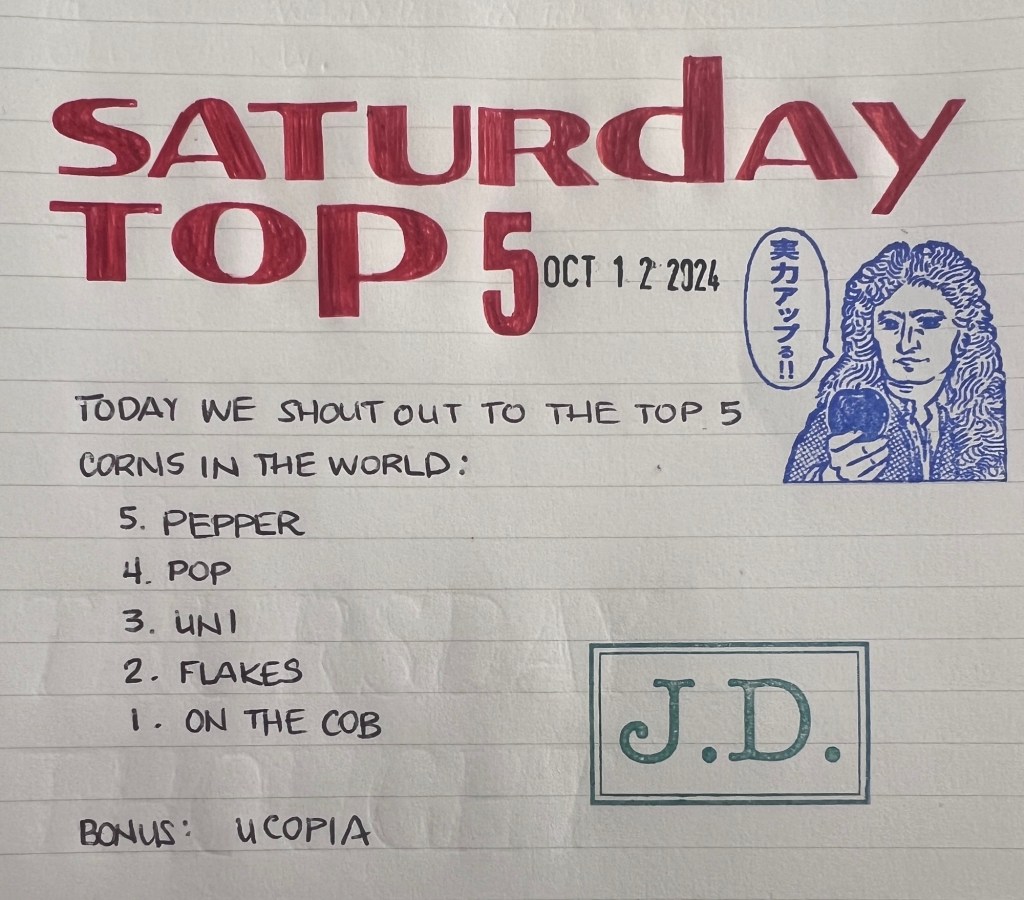 SATURdAy
TOP 5
OCT 12 2024
実力アップる!!
TODAY WE SHOUT OUT TO THE TOP 5
CORNS IN THE WORLD:
5. PEPPER
4. POP
3. UNI
2. FLAKES
1. ON THE COB
J.D.
BONUS: UCOPIA